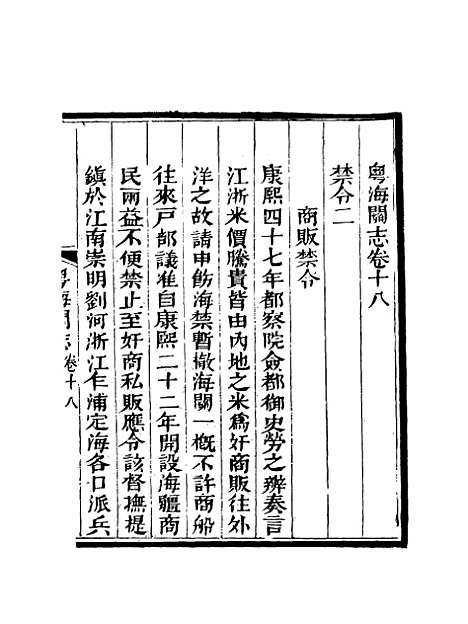 粵海關志卷十八
禁令二
商販禁令
康熙四十七年都察院僉都御史勞之辨奏言
江浙米價騰貴皆由內地之米爲奸商販往外
洋之故請申飭海禁暫撤海關一槪不許商船
往來戸部議准自康熙二十二年開設海疆商
民兩益不便禁止至奸商私販應令該督撫提
鎭於江南崇明劉河浙江乍浦定海各口派兵
粵海關志 卷十八